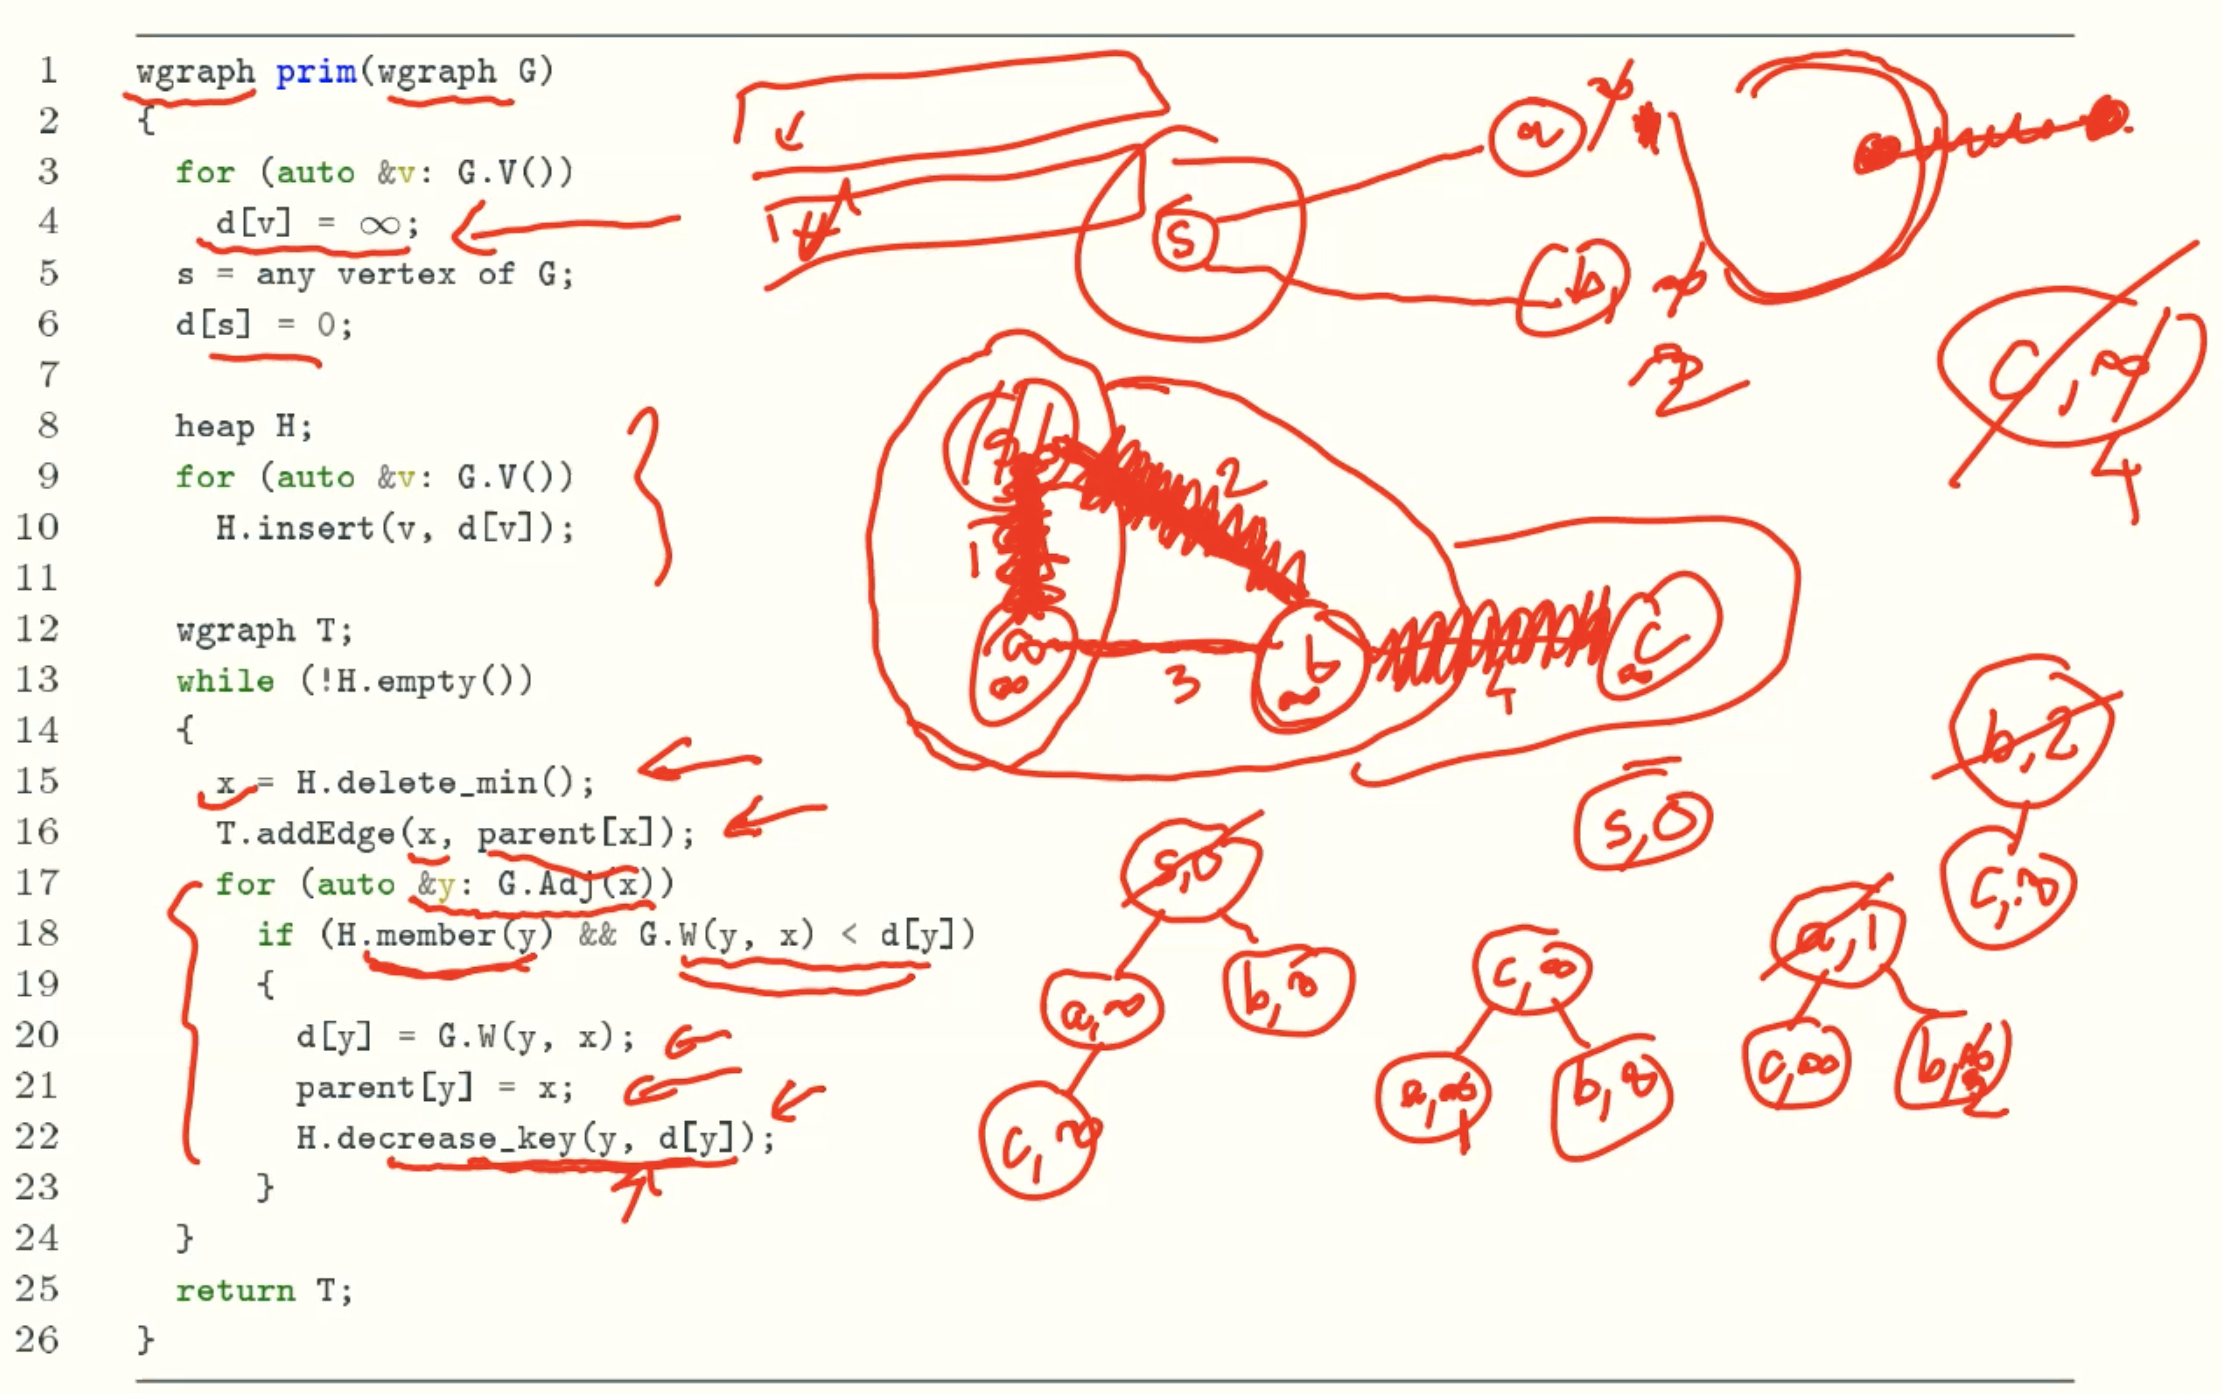 1 wgraph prim(wgraph G)
2 {
3 for (auto &v: G.V())
4 d[v] = ∞;
5 s = any vertex of G;
6 d[s] = 0;
7
8 heap H;
9 for (auto &v: G.V())
10 H.insert(v, d[v]);
11
12 wgraph T;
13 while (!H.empty())
14 {
15 x = H.delete_min();
16 T.addEdge(x, parent[x]);
17 for (auto &y: G.Adj(x))
18 if (H.member(y) && G.W(y, x) < d[y])
19 {
20 d[y] = G.W(y, x);
21 parent[y] = x;
22 H.decrease_key(y, d[y]);
23 }
24 }
25 return T;
26 }
a
S
b, ∞
2
C, ∞
4
2
1
a
∞
3
b
∞
4
C
∞
b,2
C,∞
S,0
S,0
a,∞
b,∞
C,∞
C,∞
a,∞
1
b,∞
a,1
C,∞
b,∞
2